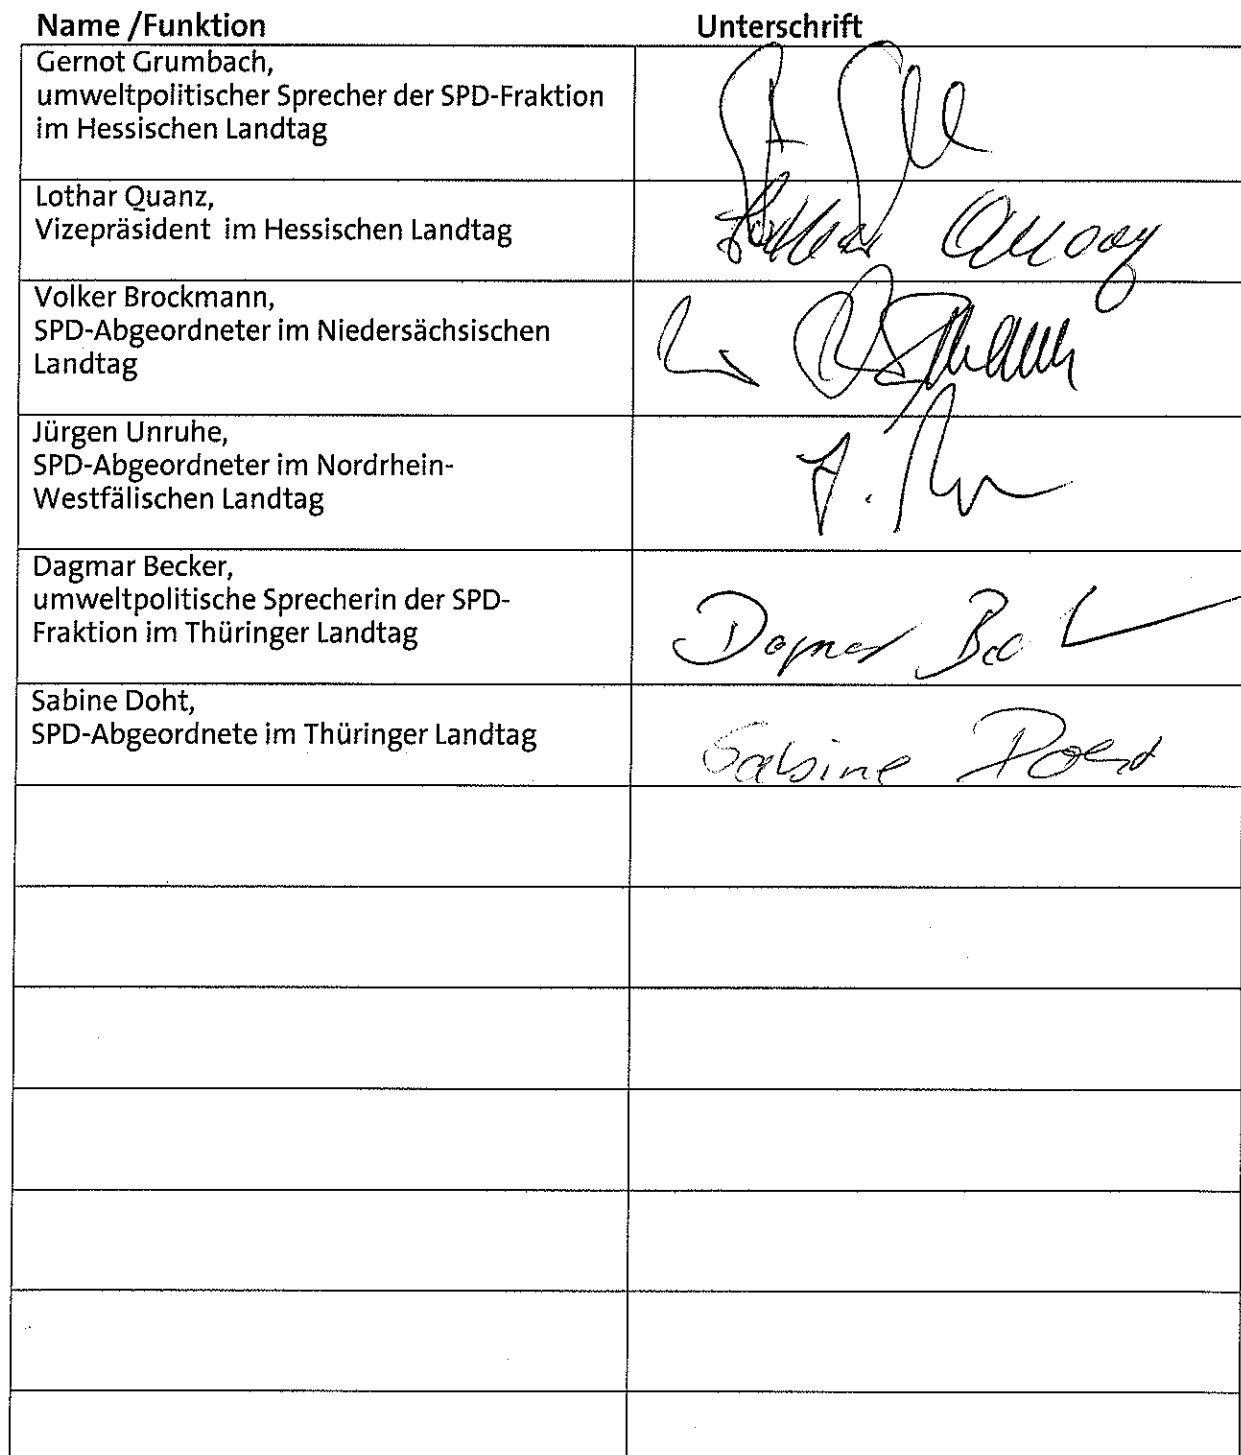 Name /Funktion Unterschrift
Gernot Grumbach,
umweltpolitischer Sprecher der SPD-Fraktion
im Hessischen Landtag
Lothar Quanz,
Vizepräsident im Hessischen Landtag
Volker Brockmann,
SPD-Abgeordneter im Niedersächsischen
Landtag
Jürgen Unruhe,
SPD-Abgeordneter im Nordrhein-
Westfälischen Landtag
Dagmar Becker,
umweltpolitische Sprecherin der SPD-
Fraktion im Thüringer Landtag
Dagmar
Sabine Doht,
SPD-Abgeordnete im Thüringer Landtag
Sabine Doht